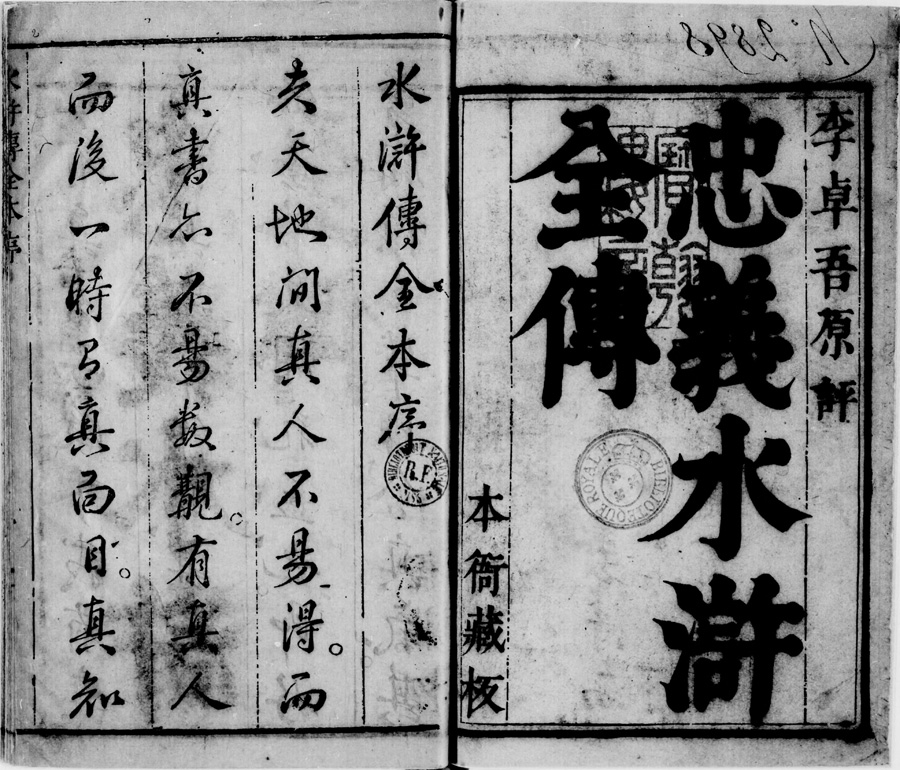 李卓吾原評
忠義水滸
全傳
本衙藏板
水滸傳全本序
R.F.
夫天地間真人不易得。而
真書亦不易數覯。有真人
而後一時有真面目。真知
水滸傳全本序